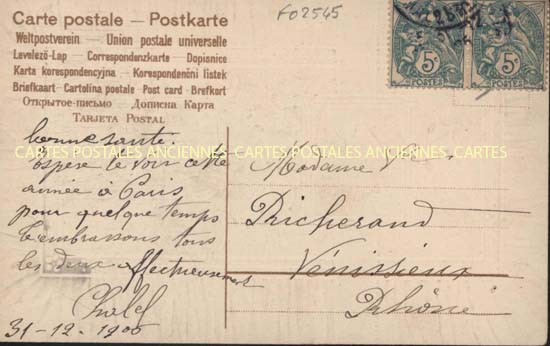 Carte postale — Postkarte
Weltpostverein — Union postale universelle
Levelező-Lap — Correspondenzkarte — Dopisnice
Karta korespondencyjna — Korespondenčni listek
Briefkaart — Cartolina postale — Post card — Brefkort
Открытое-письмо — Дописна Карта
Tarjeta Postal
F02545
5c 5c
POSTES POSTES
CARTES POSTALES ANCIENNES CARTES POSTALES ANCIENNES CARTES
bonne santé.
Espère le voir cette
année à Paris
pour quelque temps
T'embrassons tous
les deux affectueusement
31-12-1906
Madame
Richerand
Vénissieux
Rhône